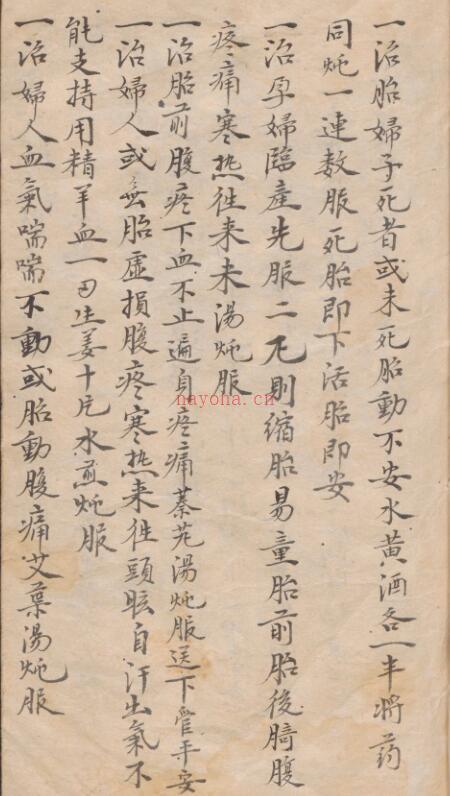 一治胎婦子死者或未死胎動不安水黄酒各一半將药
同炖一連数服死胎即下活胎即安
一治孕婦臨產先服二丸則縮胎易童胎前胎後臍腹
疼痛寒热往来未湯炖服
一治胎前腹疼下血不止遍身疼痛蓁艽湯炖服送下管平安
一治婦人或無胎虚損腹疼寒热来往頭眩自汗出氣不
能支持用精羊血一 生姜十片水煎炖服
一治婦人血氣喘喘不動或胎動腹痛艾葉湯炖服
nayoha.cn